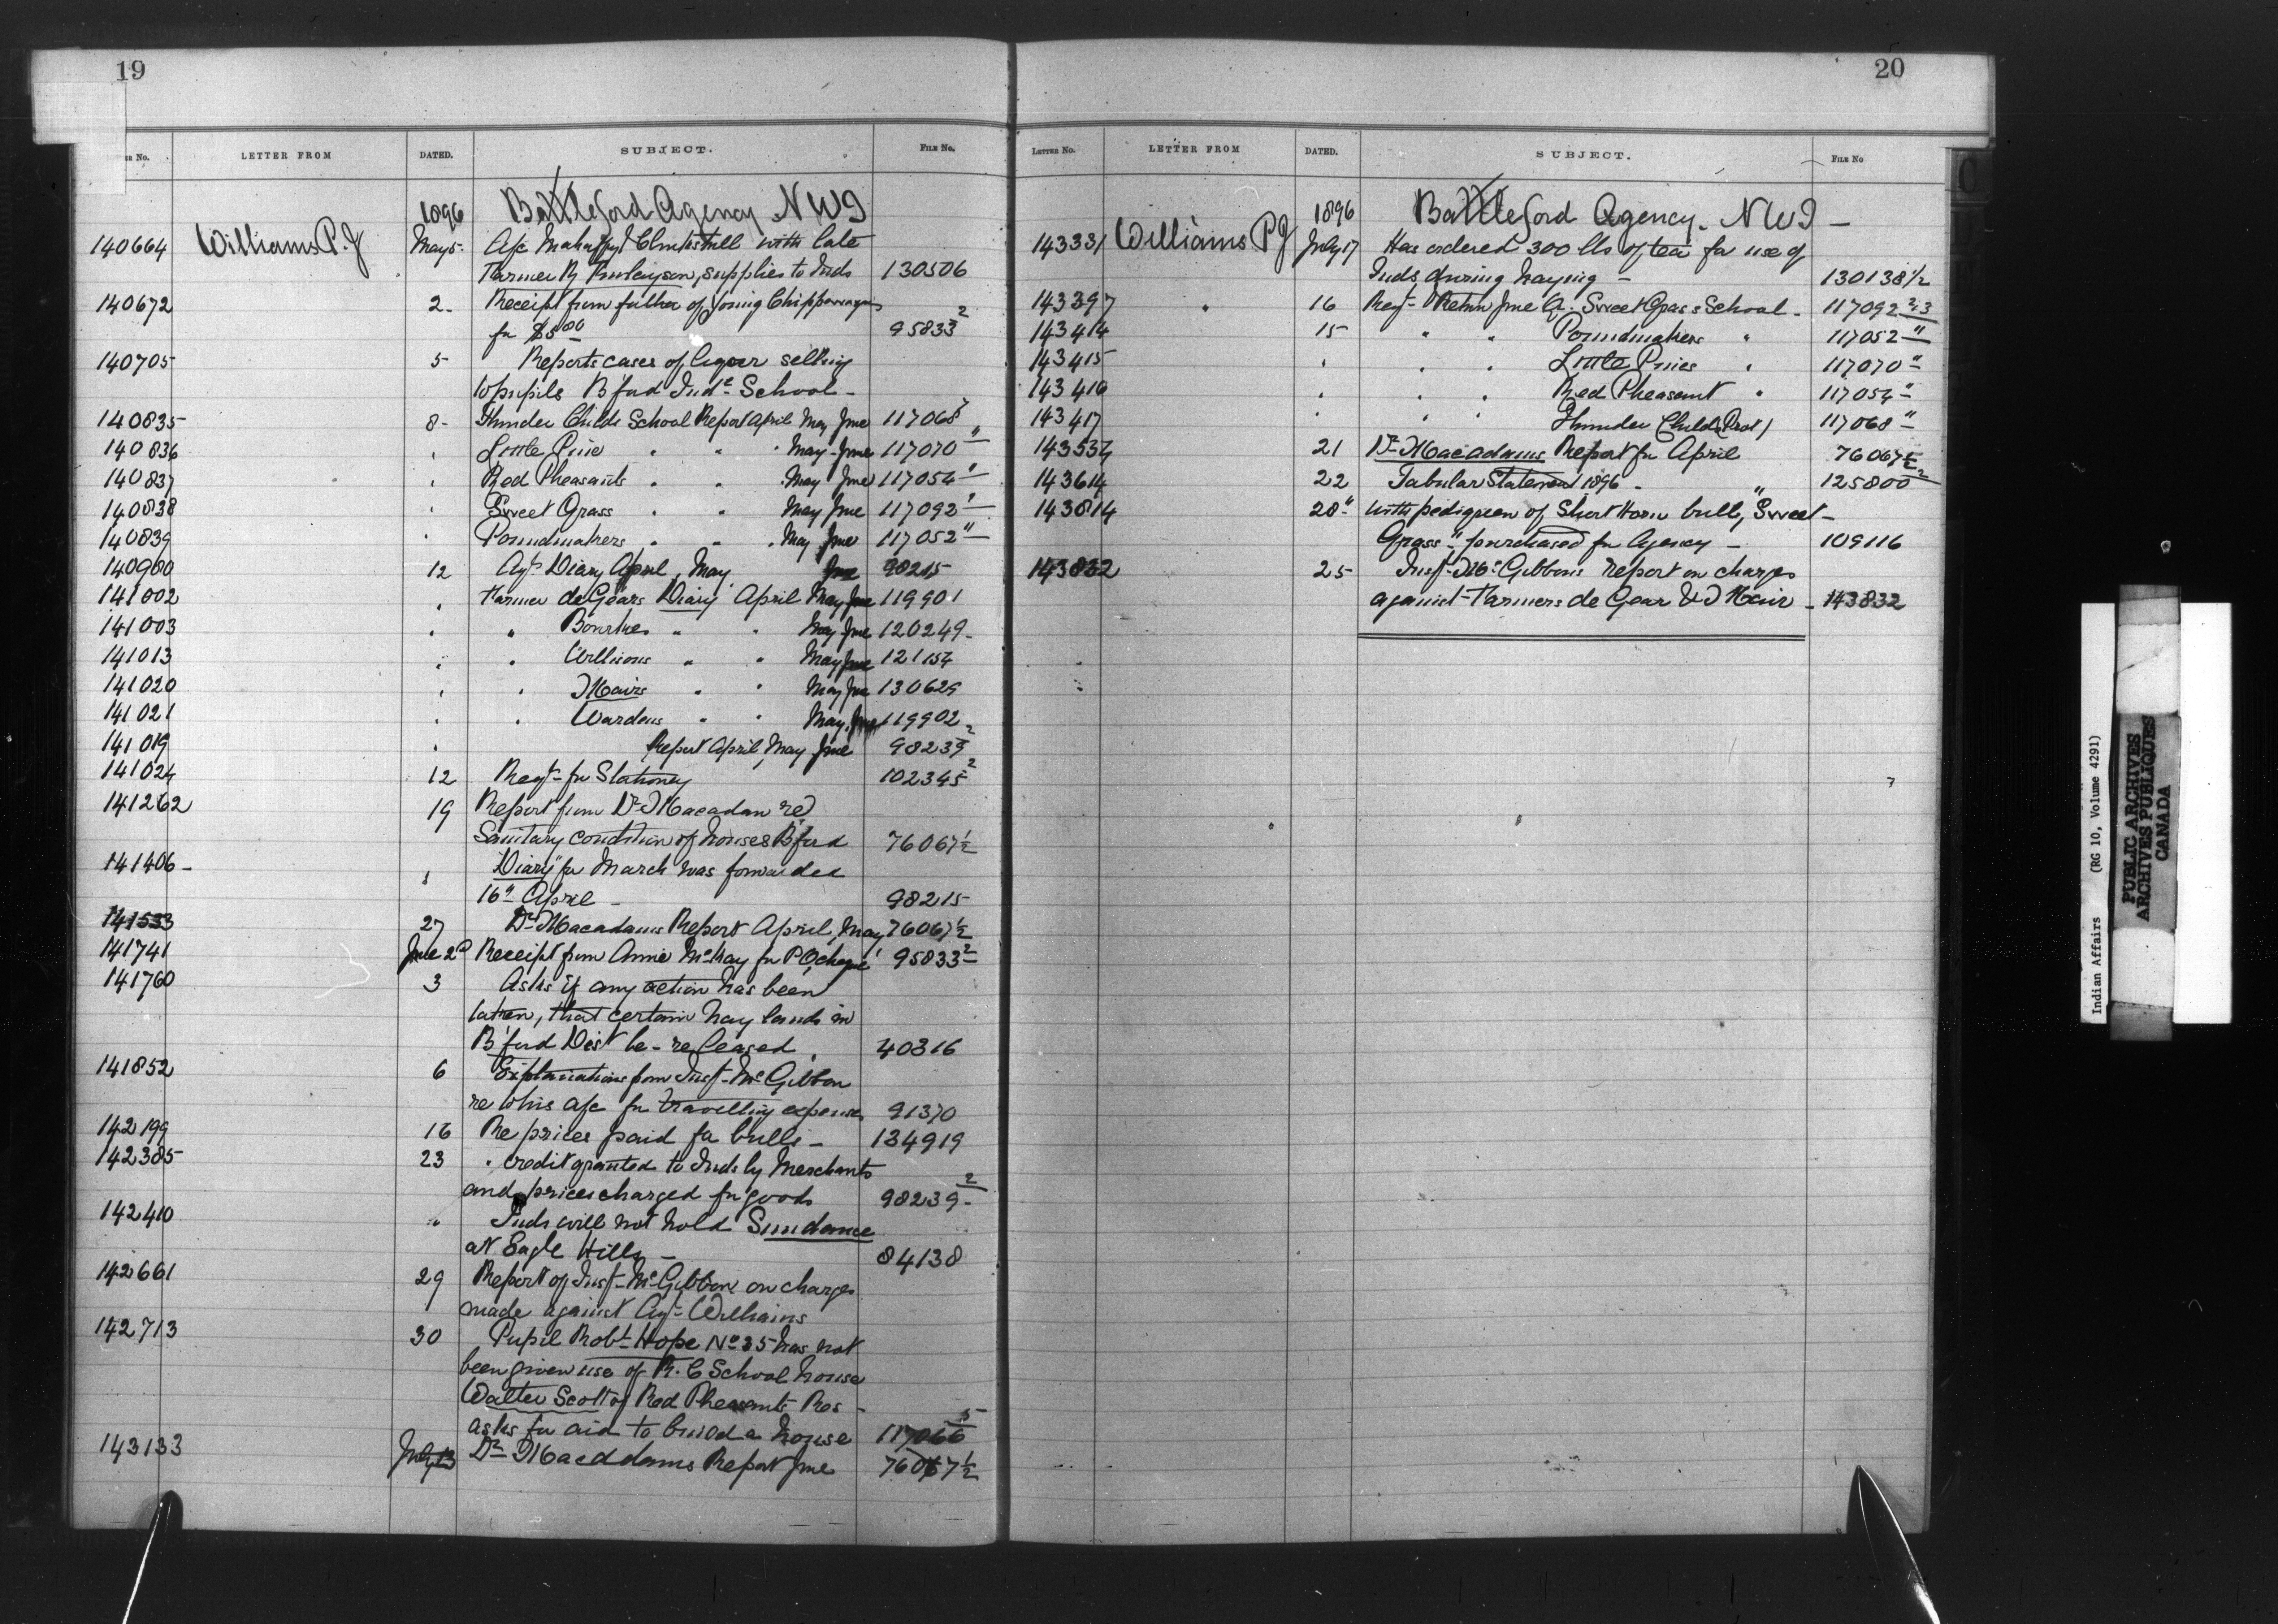 19
LETTER FROM DATED. SUBJECT. FILE No.
1896 Battleford Agency NWT
140664 Williams P. J May 5 A/c Mahaffy & Clinkskill with late
Farmer R Finlayson, supplies to Inds 130506
140672 2 Receipt from father of Young Chippewayan
for $5.00 95833 2
140705 5 Reports cases of liquor selling
to pupils B'ford Ind. School
140835 8 Thunder Childs School Report April May June 117068
140836 " Little Pine " " May June 117070 "
140837 " Red Pheasants " " May June 117054 "
140838 " Sweet Grass " " May June 117092 "
140839 " Poundmakers " " May June 117052 "
140980 12 Agt. Diary April, May June 98215
141002 " Farmer de Gears Diary April May June 119901
141003 " " Bourkes " " May June 120249
141013 " " Willsons " " May June 121154
141020 " " Nairs " " May June 130629
141021 " " Wardens " " May June 119902
141019 " Report April, May June 98239 2
141024 12 Reqt. for Stationery 102345 2
141262 19 Report from Dr Macadam re
Sanitary condition of houses B'ford 76067 1/2
141406 " Diary for March was forwarded
16" April 98215
141533 27 Dr Macadams Report April, May 76067 1/2
141741 June 2d Receipt from Annie McKay for P.O. cheque 95833 2
141760 3 Asks if any action has been
taken, that certain hay lands in
B'ford Dist be released 40316
141852 6 Explanations from Insp. McGibbon
re to his a/c for travelling expenses 91370
142199 16 Re prices paid for bulls 134919
142385 23 " credit granted to Inds by Merchants
and prices charged for goods 98239 2
142410 " Inds will not hold Sundance
at Eagle Hills 84138
142661 29 Report of Insp. McGibbon on charges
made against Agt. Williams
142713 30 Pupil Robt Hope No 35 has not
been given use of R.C School house
Walter Scott of Red Pheasants Res
asks for aid to build a house 117066 5
143133 July 13 Dr Macadams Report June 76067 1/2
20
LETTER No. LETTER FROM DATED. SUBJECT. FILE No
1896 Battleford Agency. NWT
143331 Williams P J July 17 Has ordered 300 lbs of tea for use of
Inds, during haying 130138 1/2
143397 " 16 Reqt. Return June Qr. Sweet Grass School 117092 2-3
143414 15 " " Poundmakers " 117052 "
143415 " " " Little Pines " 117070 "
143416 " " " Red Pheasant " 117054 "
143417 " " " Thunder Childs (Prot) 117068 "
143534 21 Dr Macadams Report for April 76067 1/2
143614 22 Tabular Statement 1896 125800 2
143814 28" With pedigree of Short Horn bull, "Sweet
Grass" purchased for Agency 109116
143832 25 Insp. McGibbons report on charges
against Farmers de Gear & Nair 143832
Indian Affairs (RG 10, Volume 4291)
PUBLIC ARCHIVES
ARCHIVES PUBLIQUES
CANADA